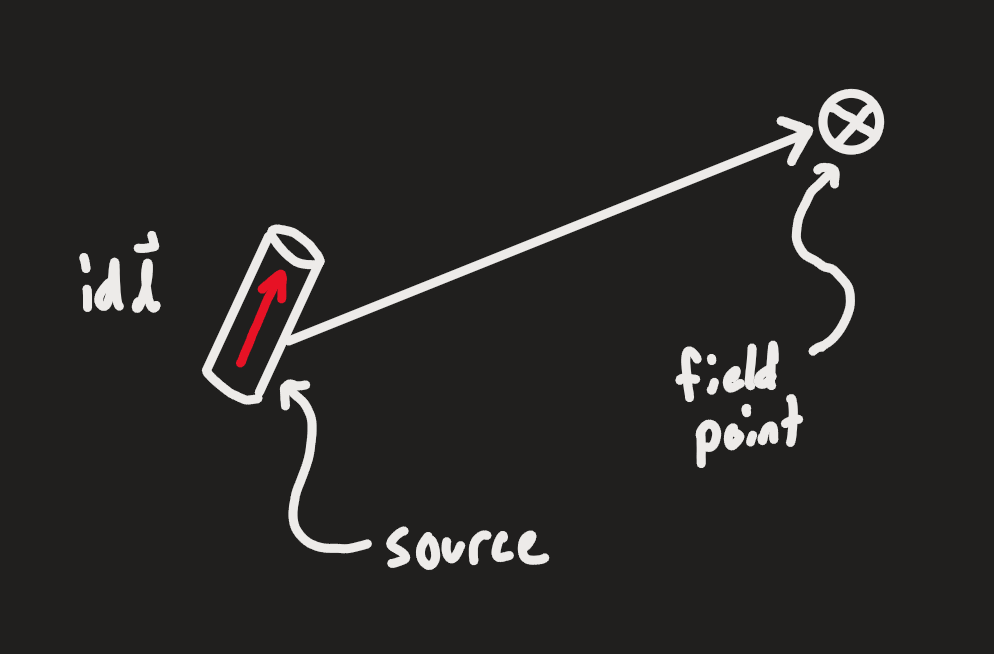 idl⃗
field
point
source